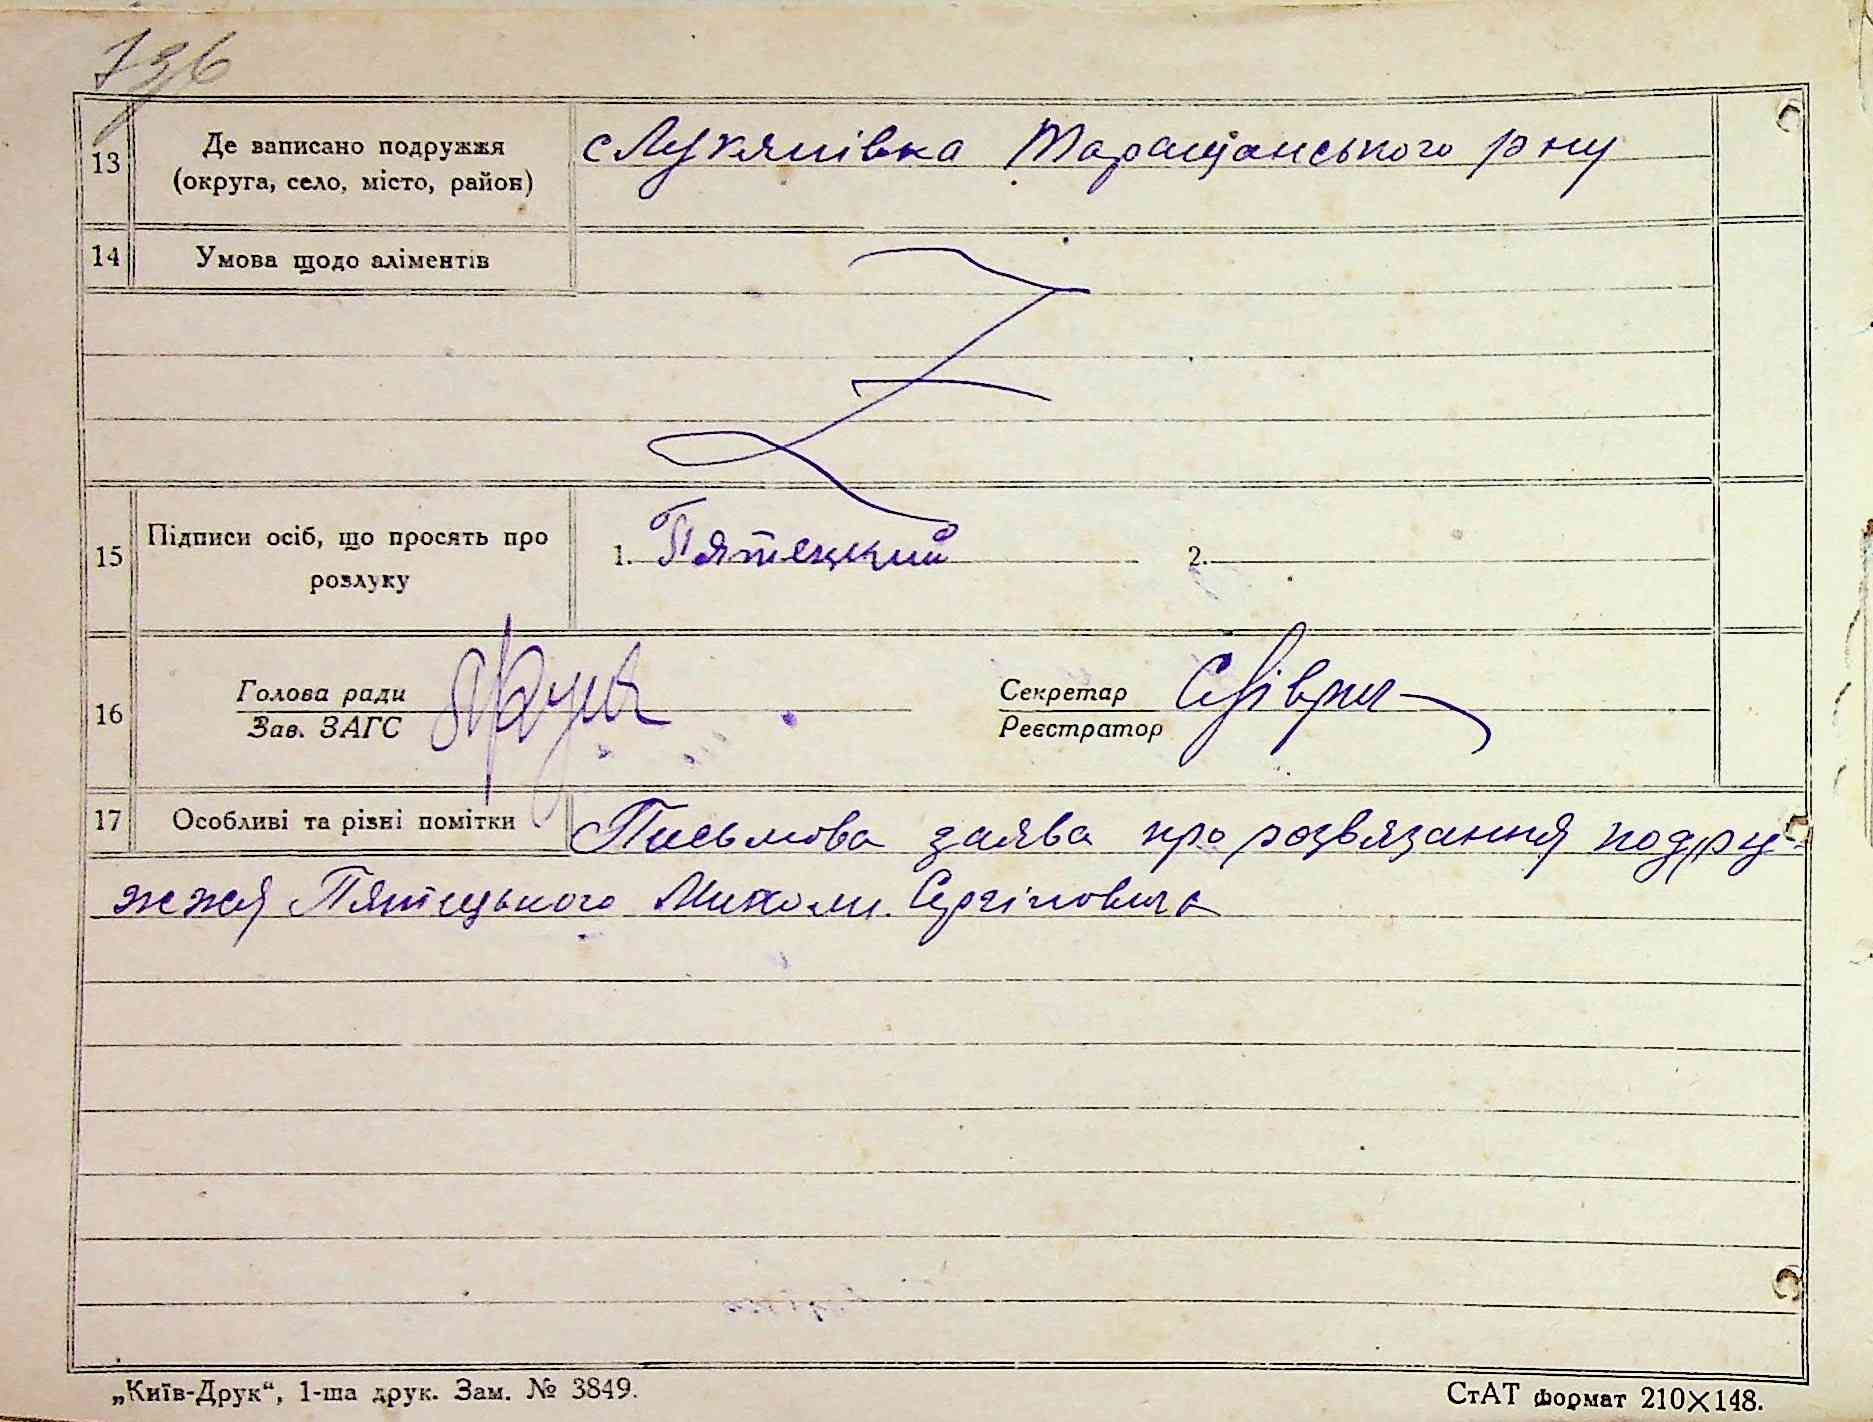 736
13 Де записано подружжя
(округа, село, місто, район)
с Лукянівка Таращанського р ну
14 Умова щодо аліментів
15 Підписи осіб, що просять про
розлуку
1. Пятецкий 2.
16 Голова ради
Зав. ЗАГС
Секретар
Реєстратор
17 Особливі та різні помітки Письмова заява про розвязання подру-
жжя Пятецького Миколи Сергійовича
„Київ-Друк“, 1-ша друк. Зам. № 3849.
СтАТ формат 210×148.